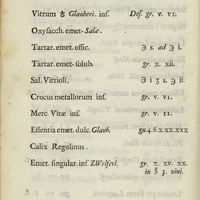 Vitrum ♁ Glauberi. inf. Dos. gr. v. vi.
Oxysacch. emet. Salæ.
Tartar. emet. offic. ℈ s. ad ℈ i.
Tartar. emet. solub. gr. x. xii.
Sal. Vitrioli. ℈ i ʒ s. ʒ ii.
Crocus metallorum inf. gr. v. vi.
Merc Vitæ inf. gr. v. vi.
Essentia emet. dulc. Glaub. gu 4. 6. x. xx. xxx
Calix Regulinus
Emet. singular. inf. ZWelferi. gr. x. xv. xx.
in ℥ 3. vini.